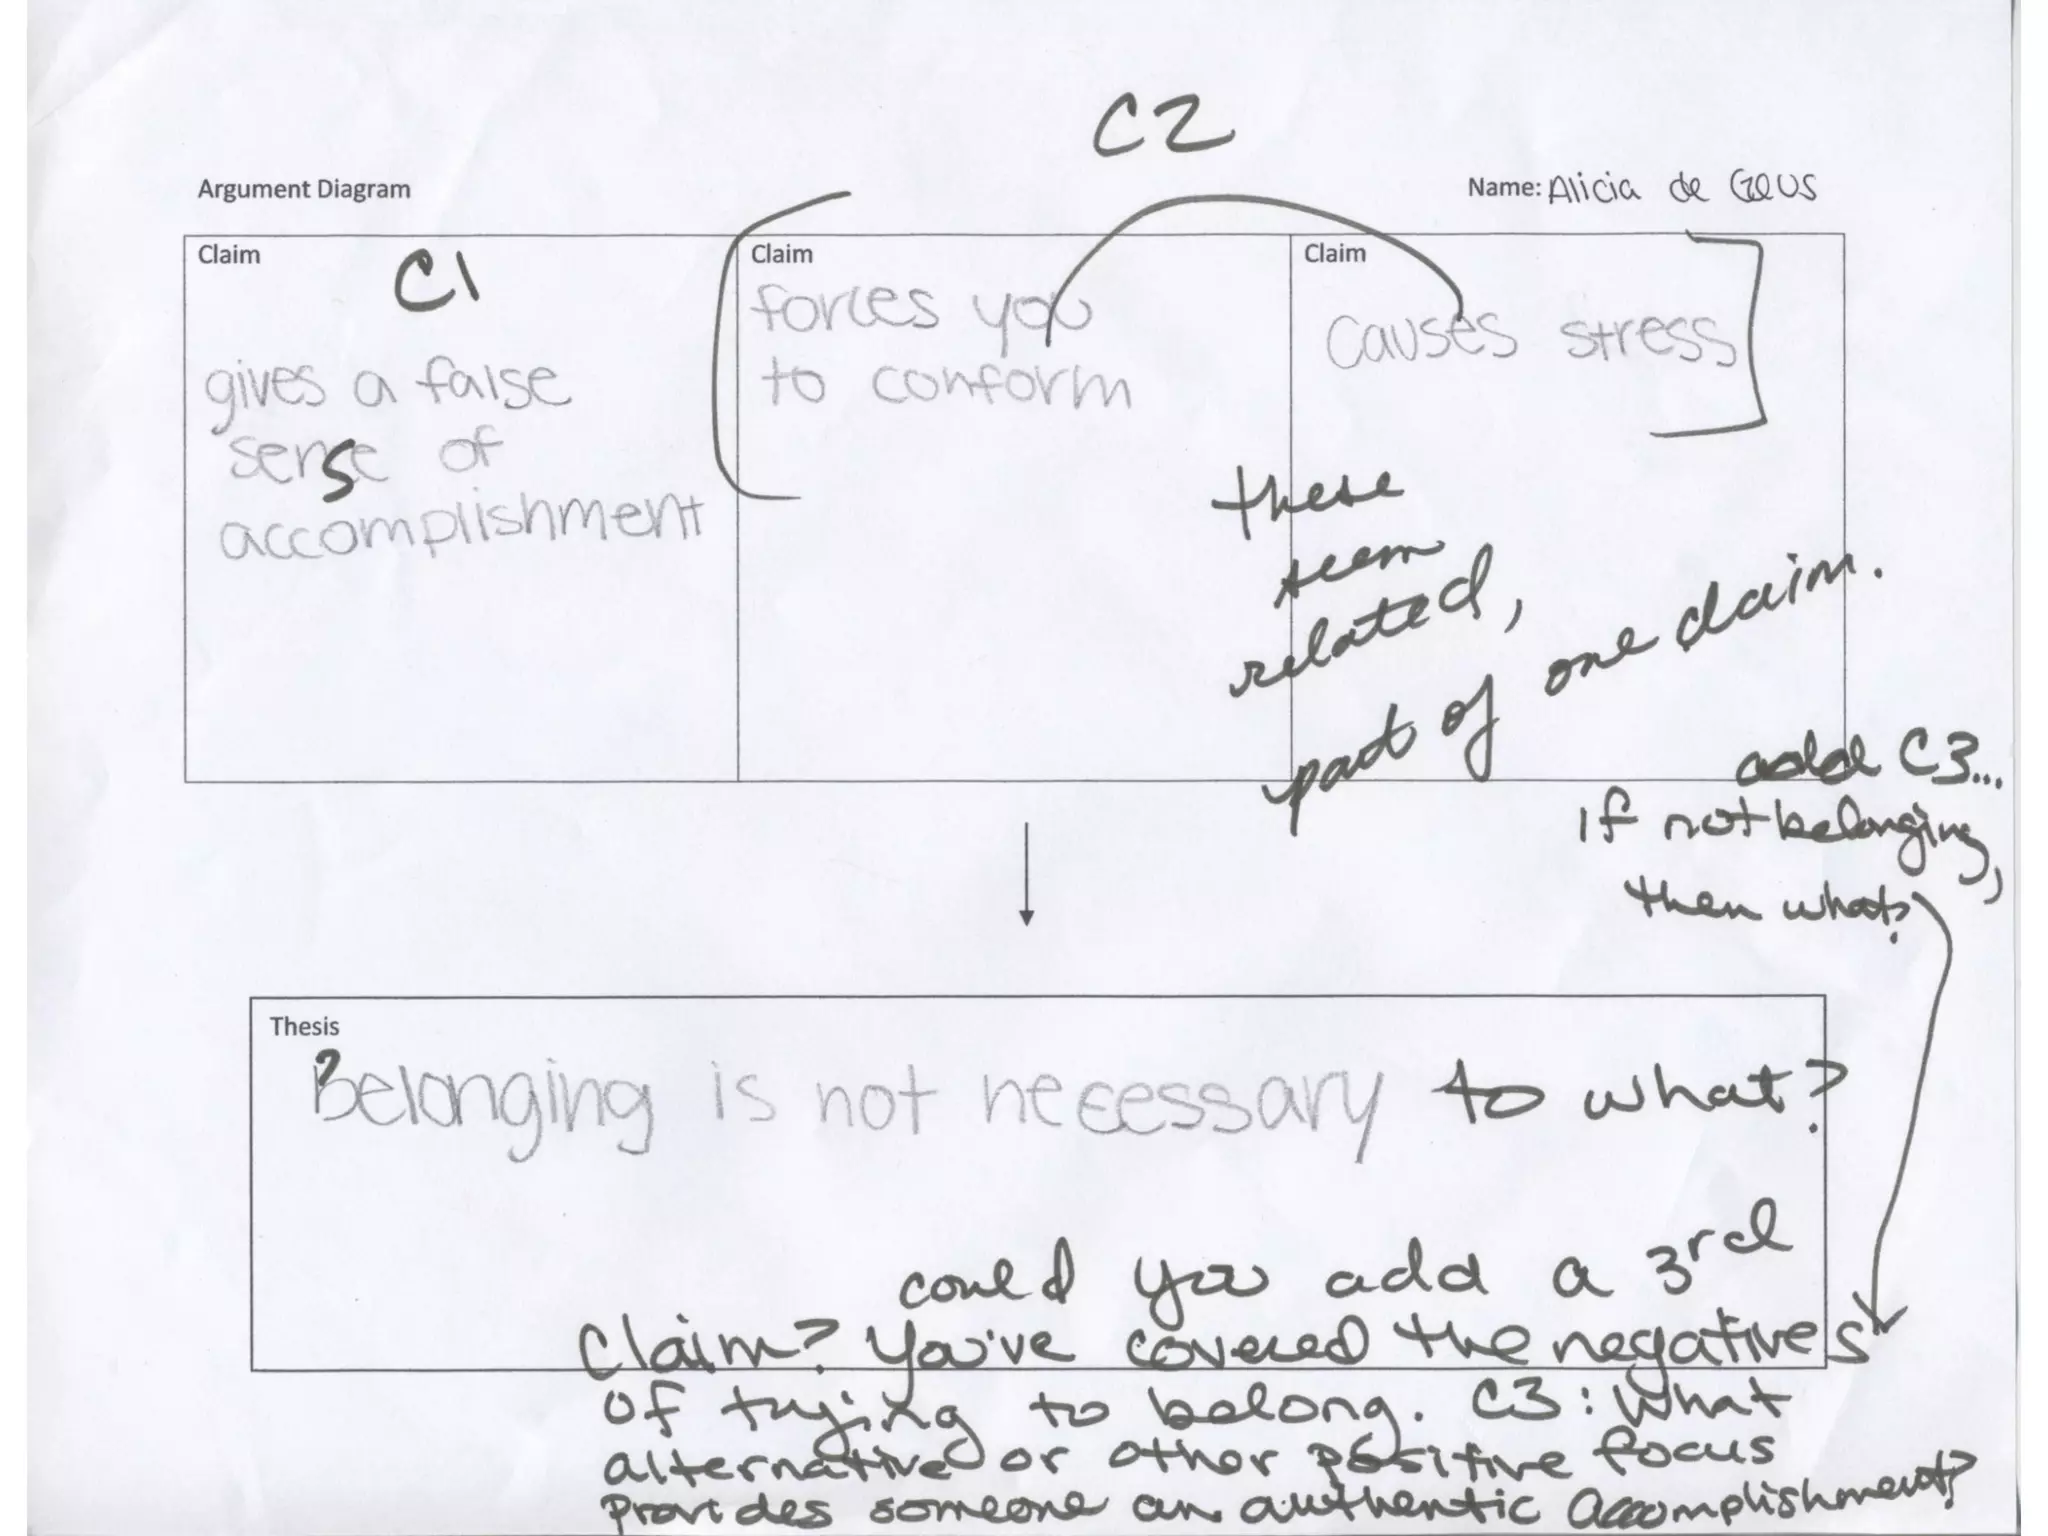 C2
Argument Diagram
Name: Alicia de Geus
Claim
C1
gives a false
sense of
accomplishment
Claim
forces you
to conform
Claim
causes stress
these
seem
related,
part of one claim.
add C3...
if not belonging,
then what?
Thesis
Belonging is not necessary to what?
could you add a 3rd
Claim? You've covered the negatives
of trying to belong. C3: What
alternative or other positive focus
provides someone an authentic accomplishment?